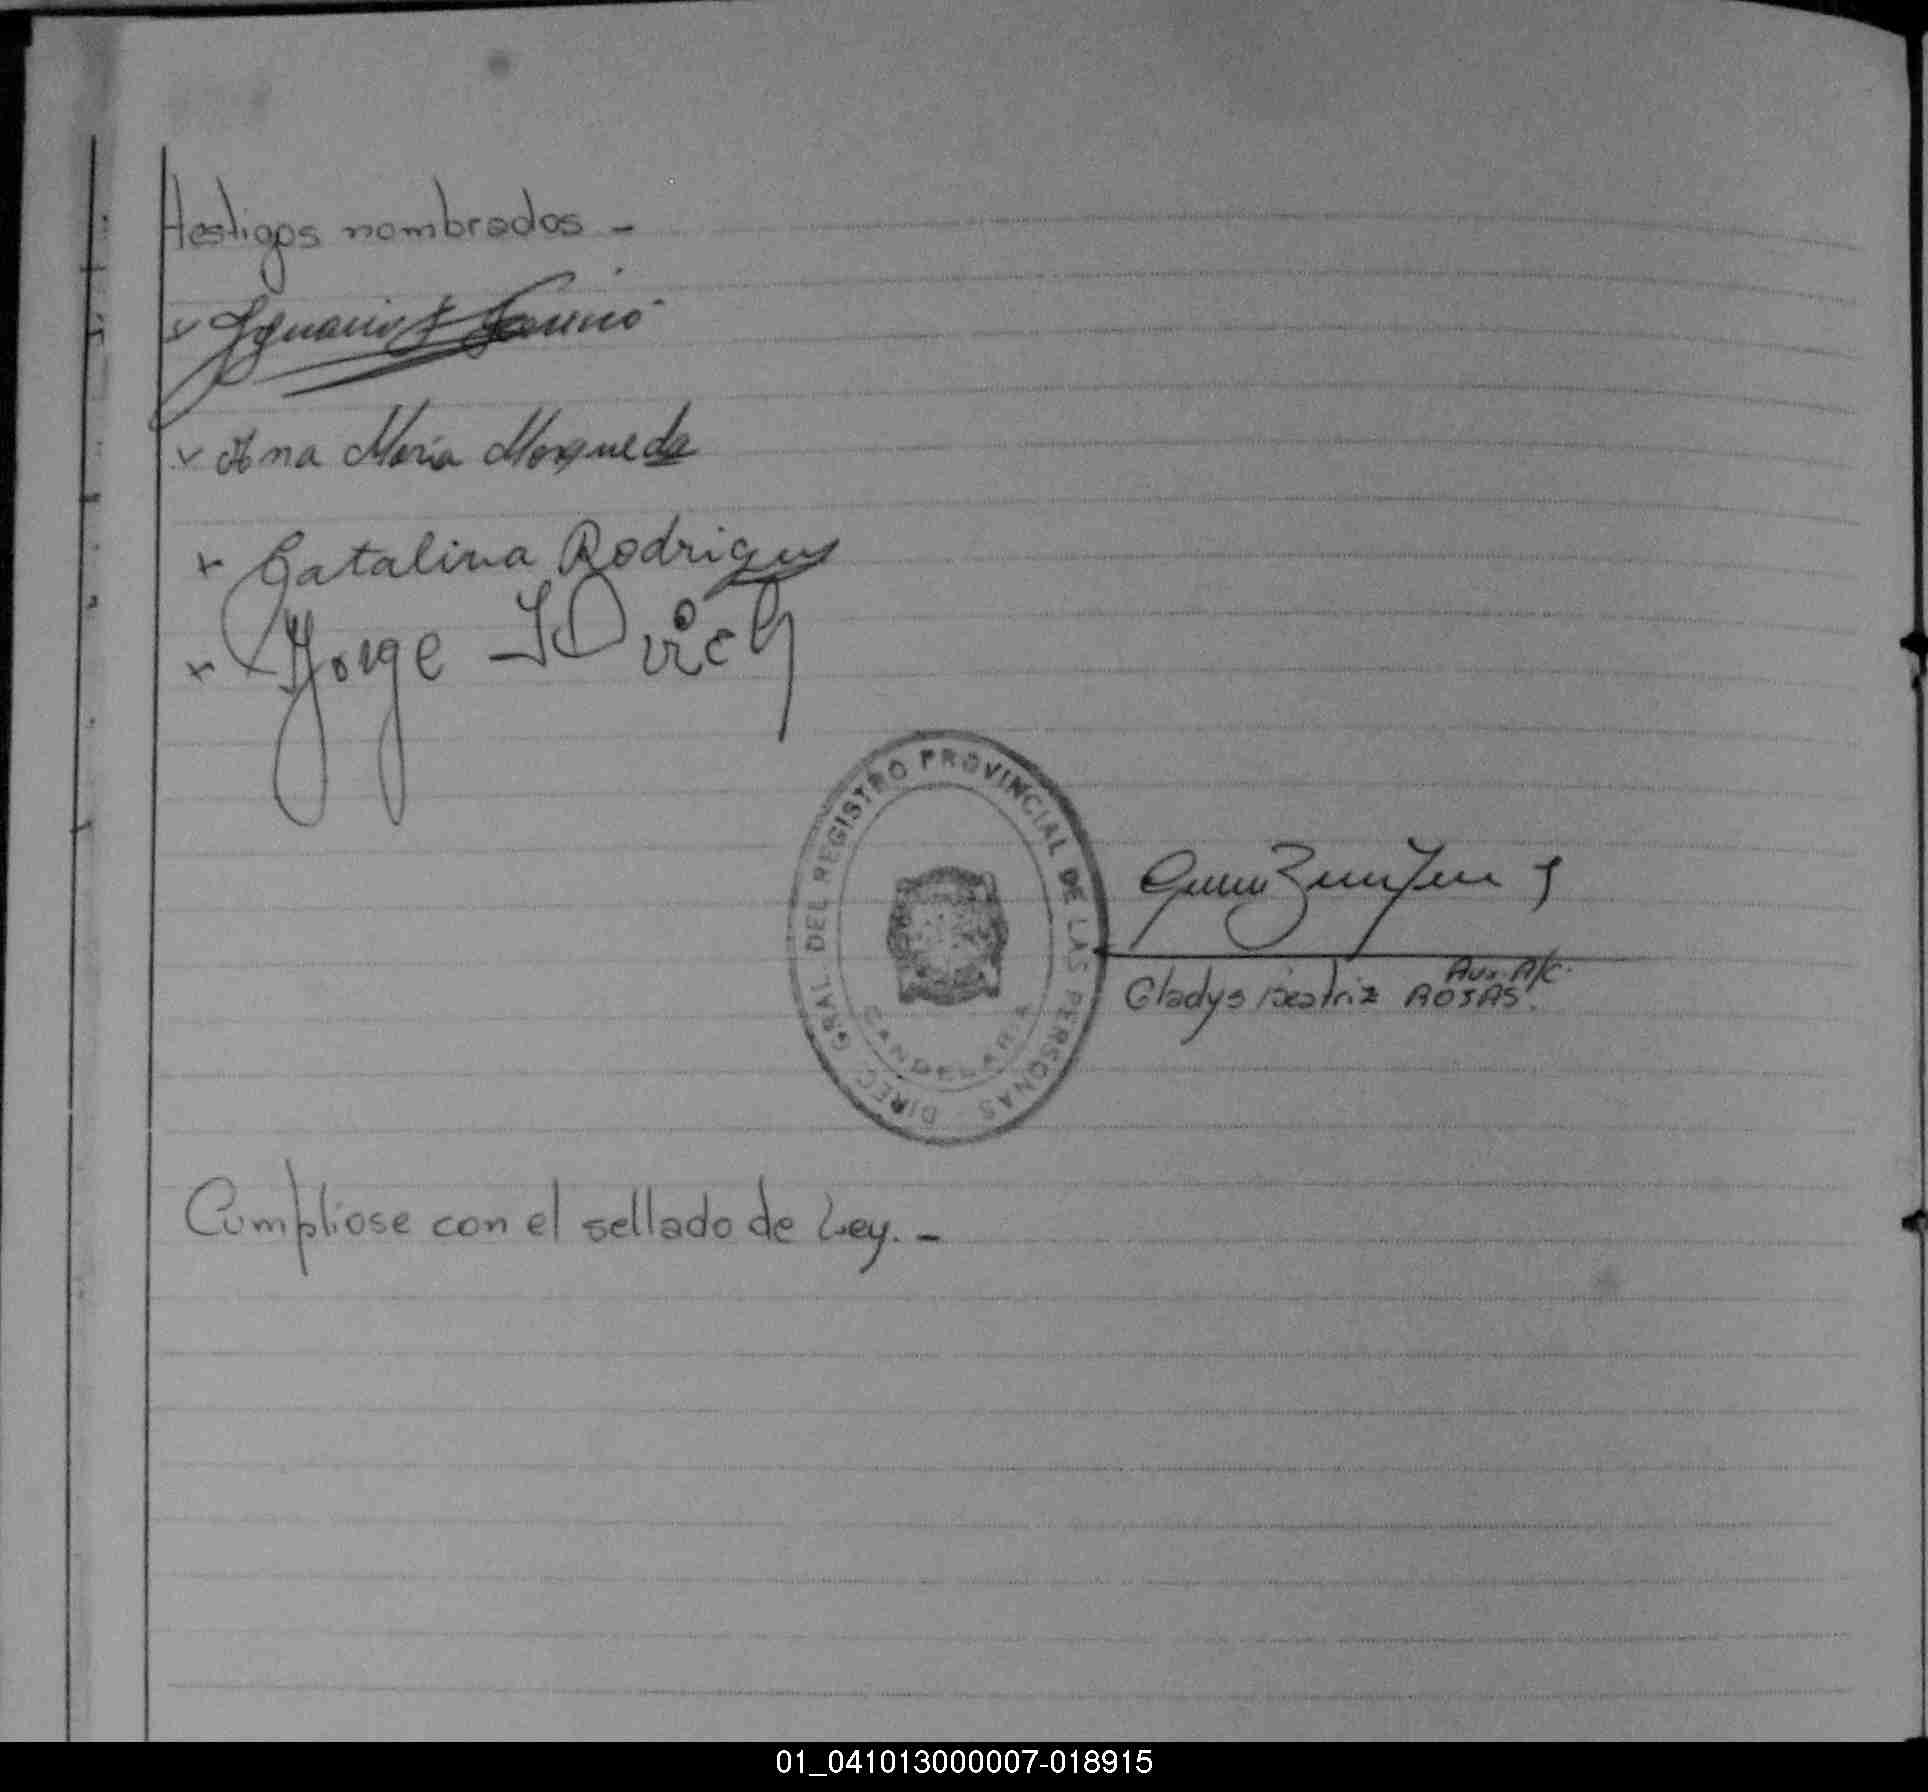 testigos nombrados -
Ana Maria Mosqueda
Catalina Rodrigues
Jorge
DIREC. GRAL. DEL REGISTRO PROVINCIAL DE LAS PERSONAS
CANDELARIA
Aux. A/C.
Gladys Beatriz ROJAS.
Cumpliose con el sellado de Ley. -
01_041013000007-018915